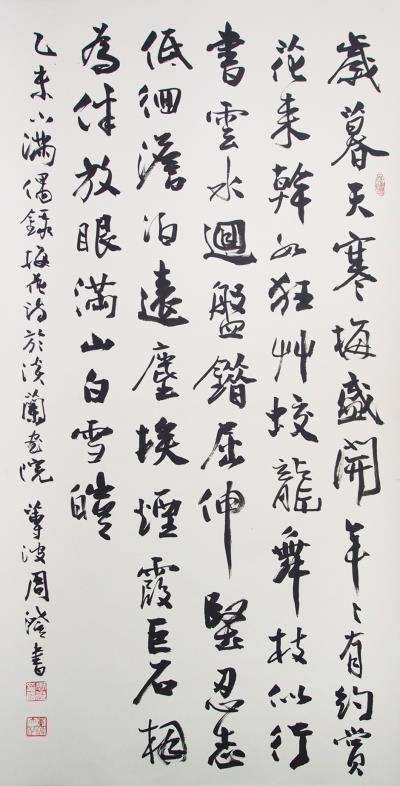 歲暮天寒梅盛開年々有約賞
花來幹如狂艸蛟龍舞枝似行
書雲水迴盤錯屈伸堅忍志
低徊澹泊遠塵埃煙霞巨石相
為伴放眼滿山白雪皚
乙未小滿偶錄梅花詩於淡蘭畫院 蓴波周澄書